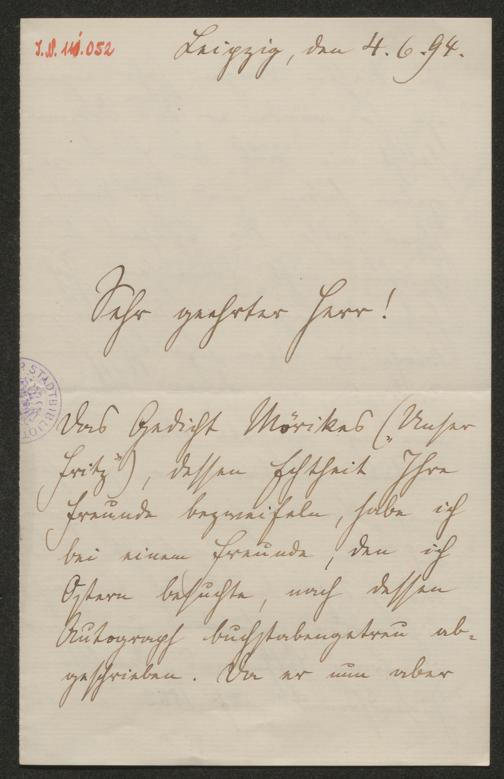 J.N. 111.052
Leipzig, den 4.6.94.
Sehr geehrter Herr!
STADTBIBLIOT
Das Gedicht Mörikes („Unser
Fritz“), dessen Echtheit Ihre
Freunde bezweifeln, habe ich
bei einem Freunde, den ich
Ostern besuchte, nach dessen
Autograph buchstabengetreu ab-
geschrieben. Da er nun aber